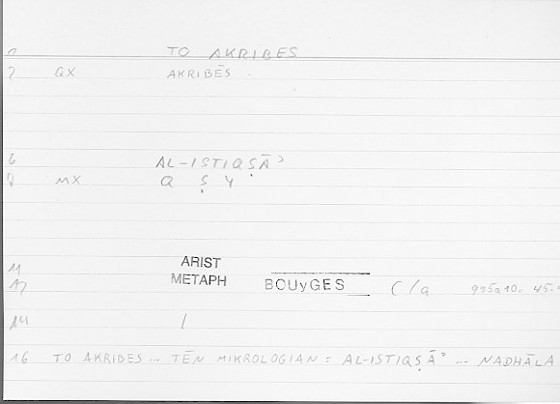 0 TO AKRIBES
2 GX AKRIBĒS
6 AL-ISTIQṢĀʾ
8 MX Q Ṣ Y
11 ARIST
12 METAPH BOUyGES C/a 995a10; 45.
14 /
16 TO AKRIBES -- TĒN MIKROLOGIAN = AL-ISTIQṢĀʾ -- NADHĀLA